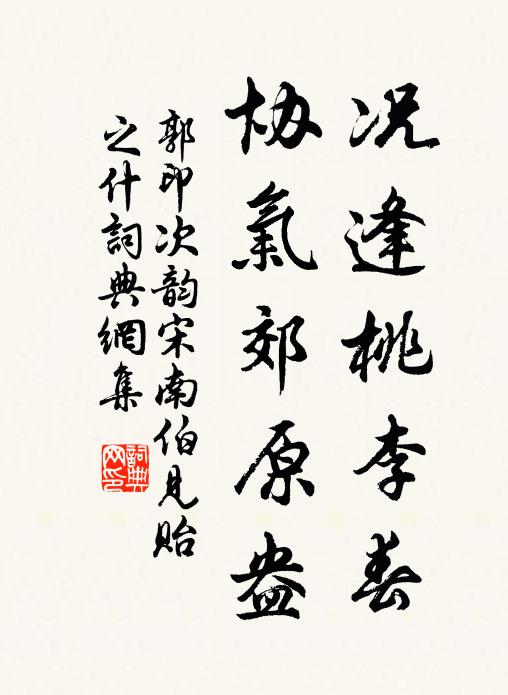 况逢桃李春
协氣郊原盎
郭印次韵宋南伯見貽
之什詞典網集
詞典
网印